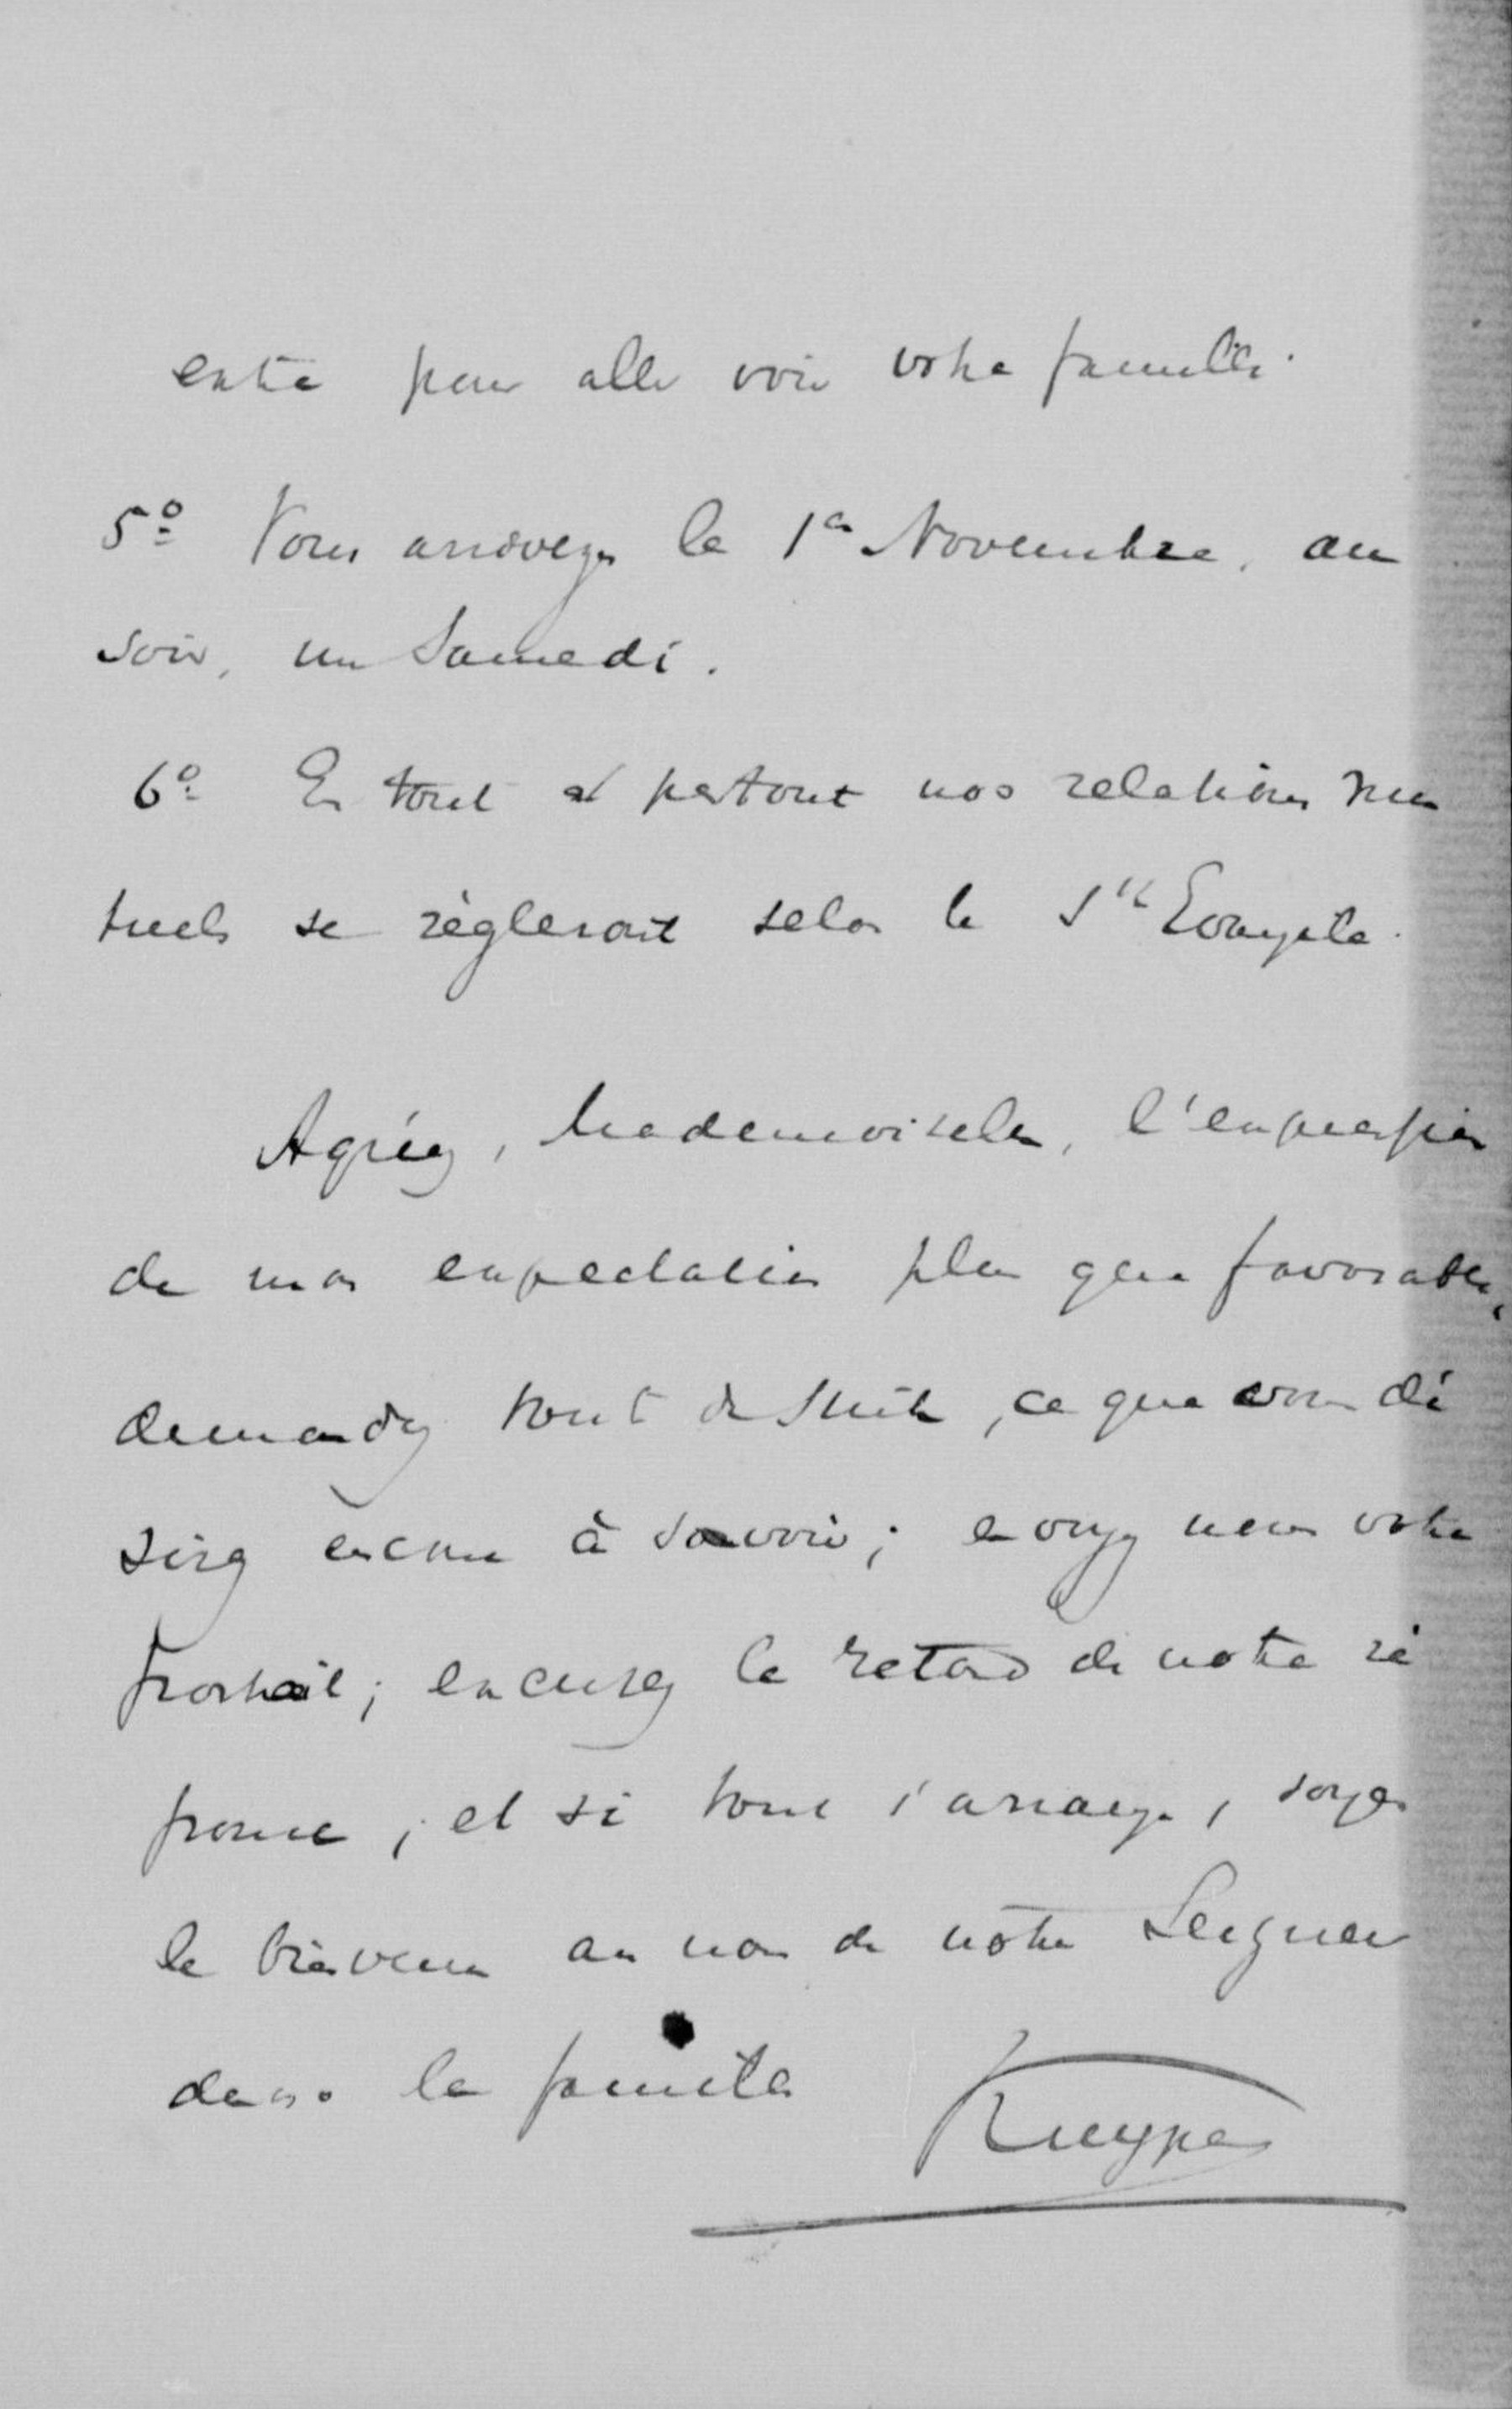 entre pour aller voir votre famille.
5º Vous arrivez le 1er Novembre, au
soir, un Samedi.
6º En tout et partout nos relations mu
tuels se régleront selon le St Evangile.
Agréez, Mademoiselle, l'expression
de mon expectation plus que favorable,
demandez tout de suite, ce que vous dé
sirez encore à savoir; envoyez nous votre
portrait; excusez le retard de notre ré
ponse; et si tout s'arrange, soyez
le bienvenu au nom de notre Seigneur
dans la famille Kuyper